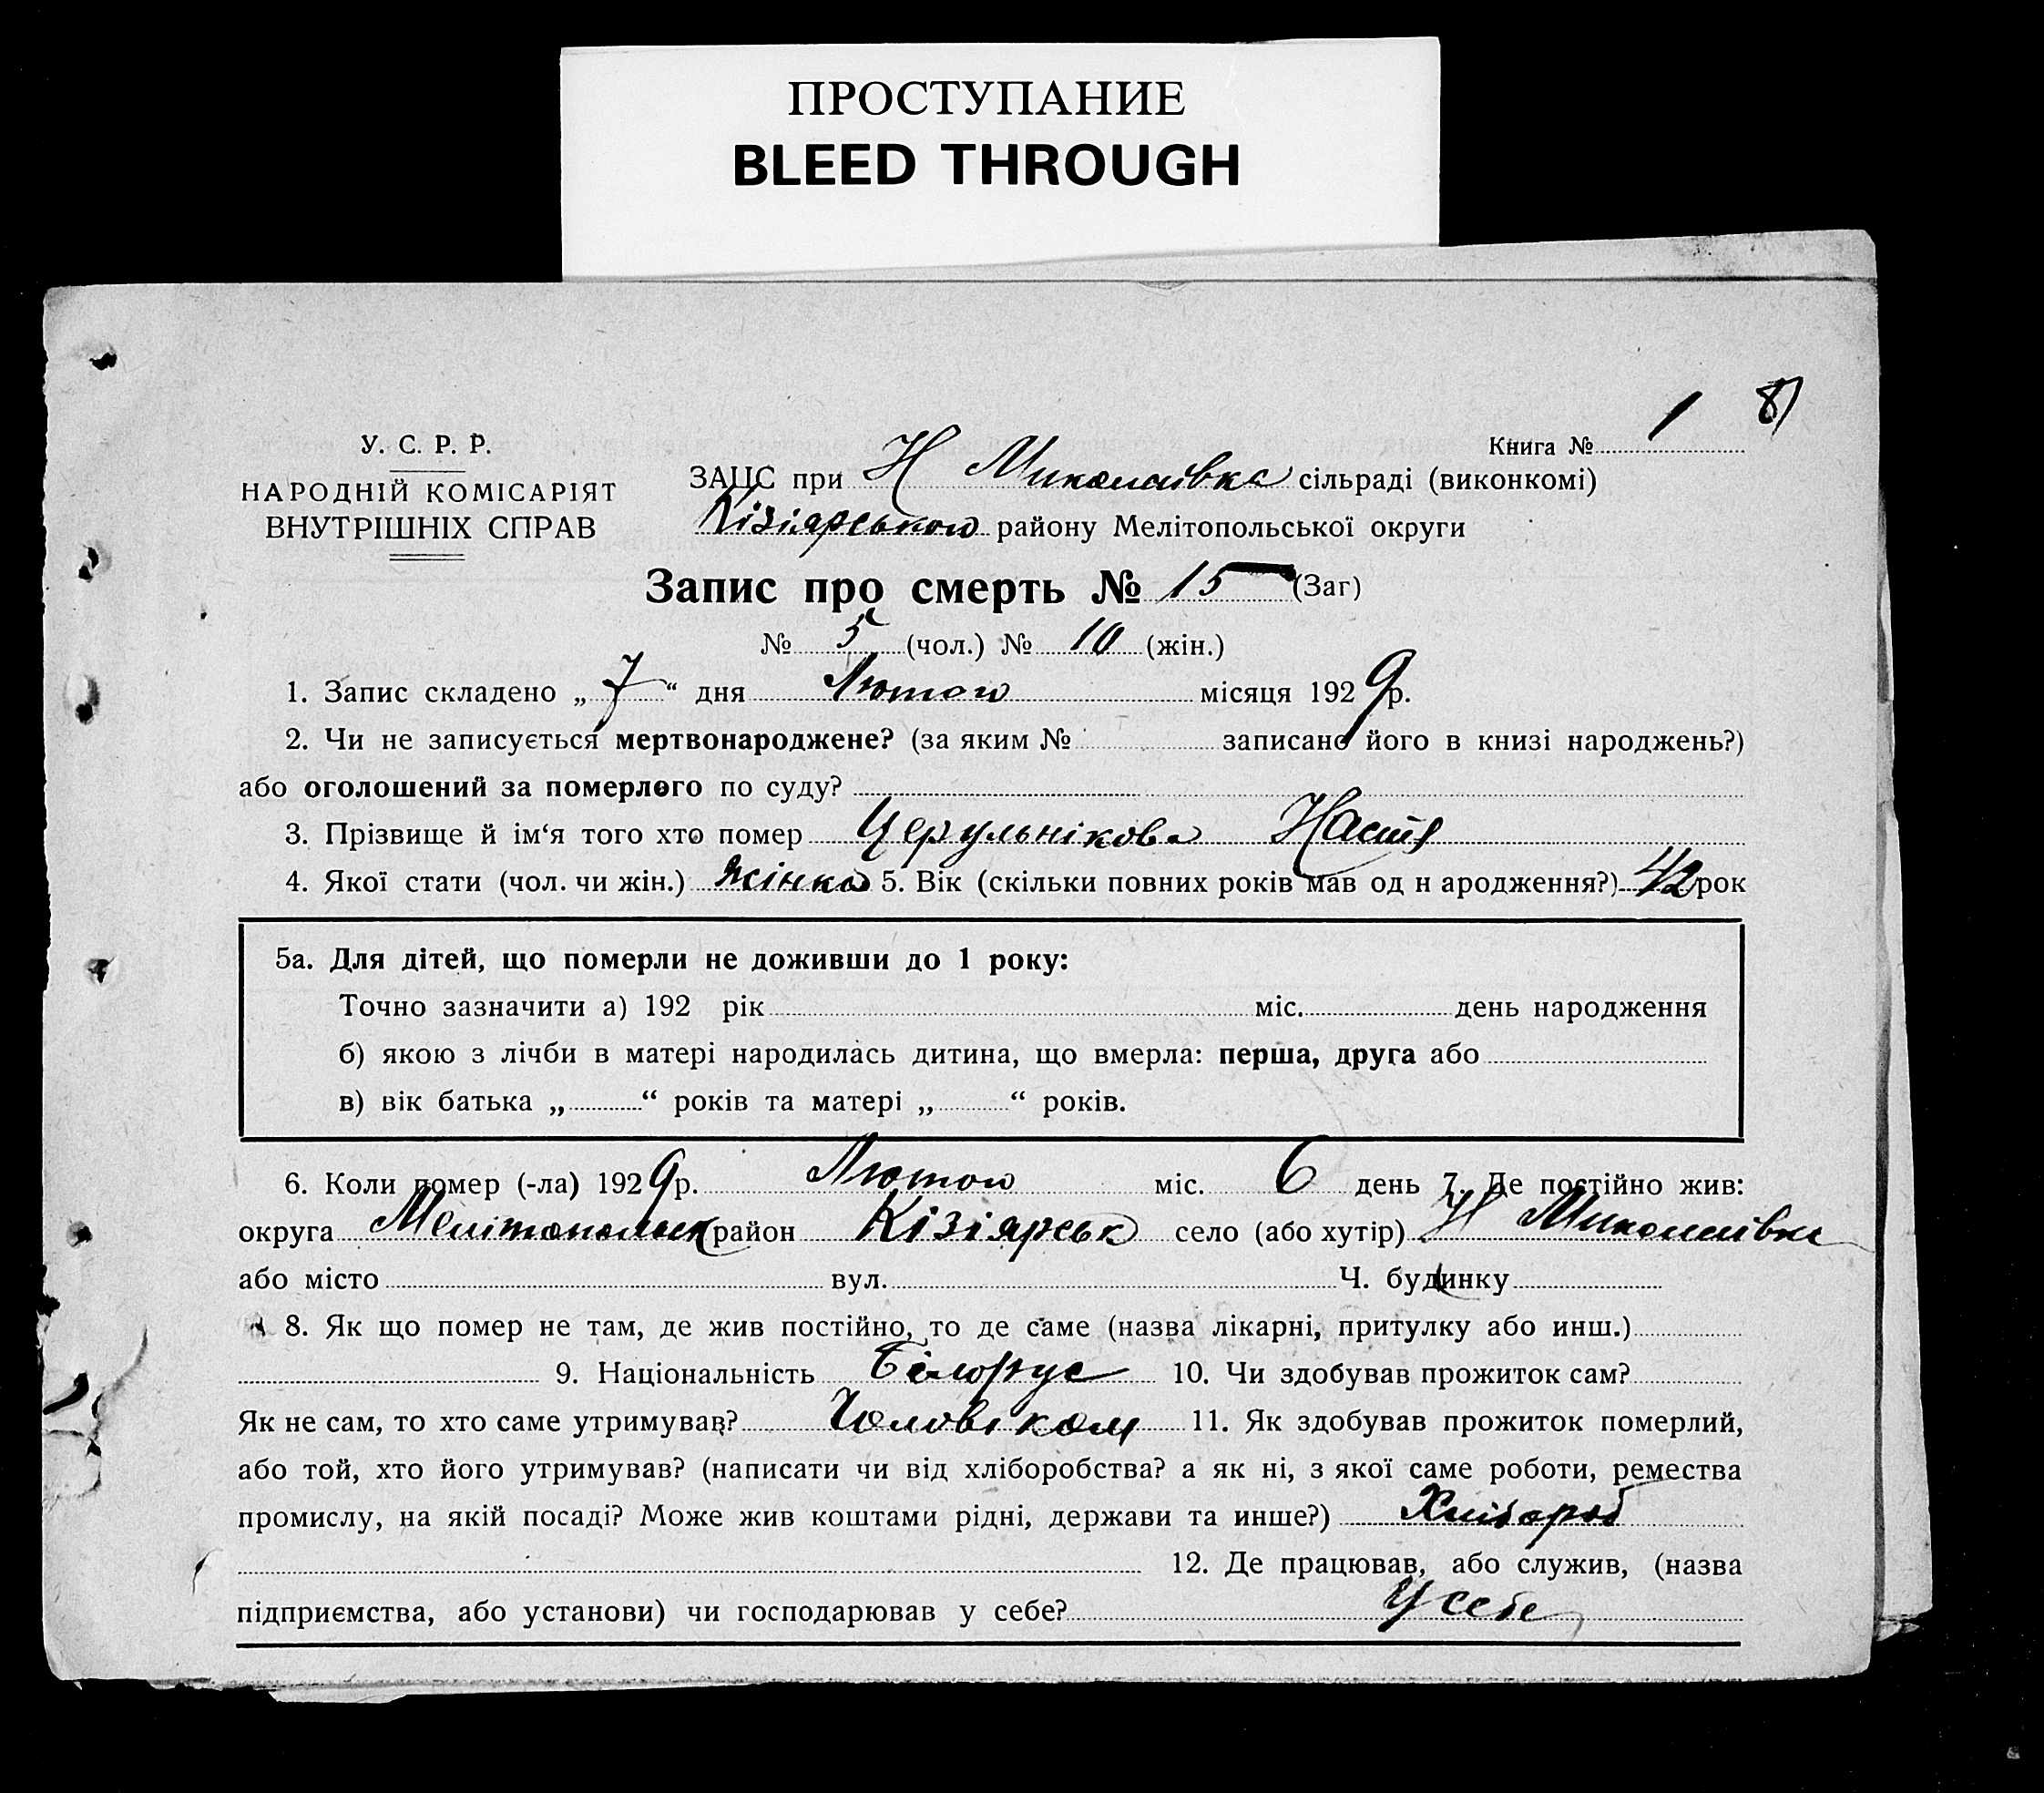 ПРОСТУПАНИЕ
BLEED THROUGH
81
Книга № 1
У. С. Р. Р.
НАРОДНІЙ КОМІСАРІЯТ
ВНУТРІШНІХ СПРАВ
ЗАЦС при Н Миколаївка сільраді (виконкомі)
Кізіярського району Мелітопольської округи
Запис про смерть № 15 (Заг)
№ 5 (чол.) № 10 (жін.)
1. Запис складено „ 7 “ дня Лютого місяця 1929 р.
2. Чи не записується мертвонароджене? (за яким № записано його в книзі народжень?)
або оголошений за померлого по суду?
3. Прізвище й ім‘я того хто помер Церульнікова Настя
4. Якої стати (чол. чи жін.) жінка 5. Вік (скільки повних років мав од н ародження?) 42 рок
5а. Для дітей, що померли не доживши до 1 року:
Точно зазначити а) 192 рік міс. день народження
б) якою з лічби в матері народилась дитина, що вмерла: перша, друга або
в) вік батька „ “ років та матері „ “ років.
6. Коли помер (-ла) 1929 р. Лютого міс. 6 день 7. Де постійно жив:
округа Мелітопольск район Кізіярськ село (або хутір) Н Миколаївка
або місто вул. Ч. будинку
8. Як що помер не там, де жив постійно, то де саме (назва лікарні, притулку або инш.)
9. Національність Білорус 10. Чи здобував прожиток сам?
Як не сам, то хто саме утримував? Чоловіком 11. Як здобував прожиток померлий,
або той, хто його утримував? (написати чи від хліборобства? а як ні, з якої саме роботи, ремества
промислу, на якій посаді? Може жив коштами рідні, держави та инше?) Хлібороб
12. Де працював, або служив, (назва
підприємства, або установи) чи господарював у себе? У себе